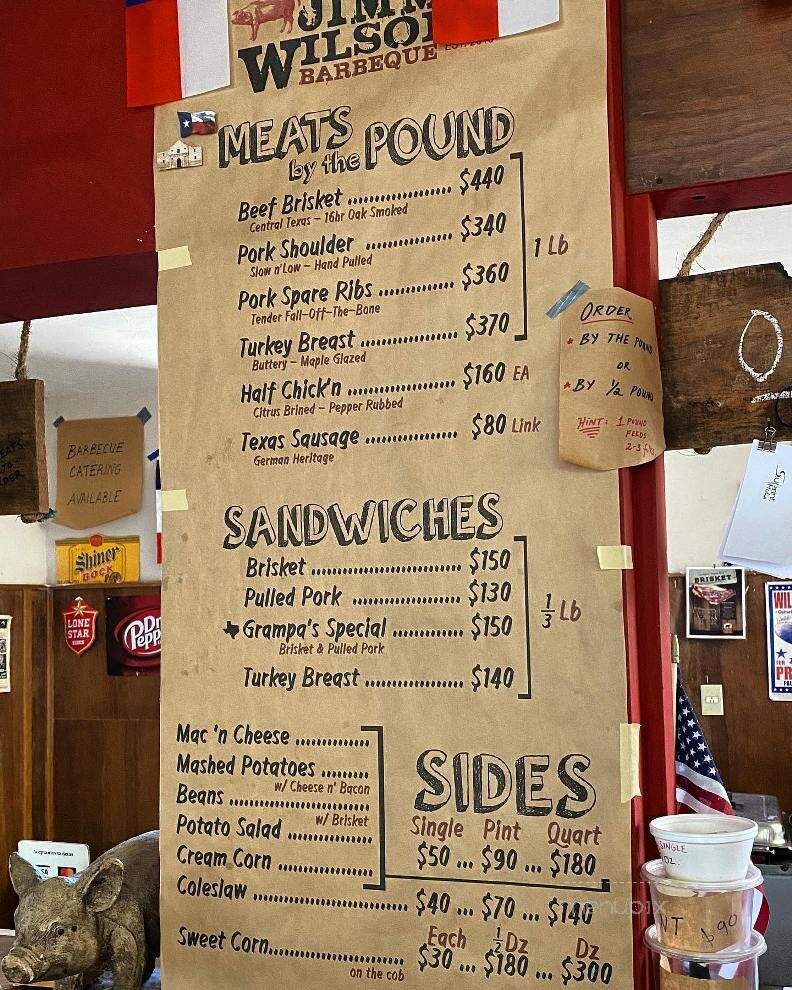 JIMM
WILSO
BARBEQUE
MEATS
by the POUND
Beef Brisket ........ $440
Central Texas – 16hr Oak Smoked
Pork Shoulder ........ $340
Slow n'Low – Hand Pulled
Pork Spare Ribs ........ $360
Tender Fall-Off-The-Bone
Turkey Breast ........ $370
Buttery – Maple Glazed
1 Lb
Half Chick'n ........ $160 EA
Citrus Brined – Pepper Rubbed
Texas Sausage ........ $80 Link
German Heritage
SANDWICHES
Brisket ........ $150
Pulled Pork ........ $130
Grampa's Special ........ $150
Brisket & Pulled Pork
Turkey Breast ........ $140
1/3 Lb
SIDES
Mac 'n Cheese ........
Mashed Potatoes ........
w/ Cheese n' Bacon
Beans ........
w/ Brisket
Potato Salad ........
Cream Corn ........
Single Pint Quart
$50 ... $90 ... $180
Coleslaw ........ $40 ... $70 ... $140
Each 1/2 Dz Dz
Sweet Corn........ $30 ... $180 ... $300
on the cob
ORDER
* BY THE POUND
OR
* BY 1/2 POUND
HINT: 1 POUND
FEEDS
2-3
BARBECUE
CATERING
AVAILABLE
Shiner
BOCK
LONE
STAR
Dr
Pepp
BRISKET
SINGLE
OZ.
NT $90